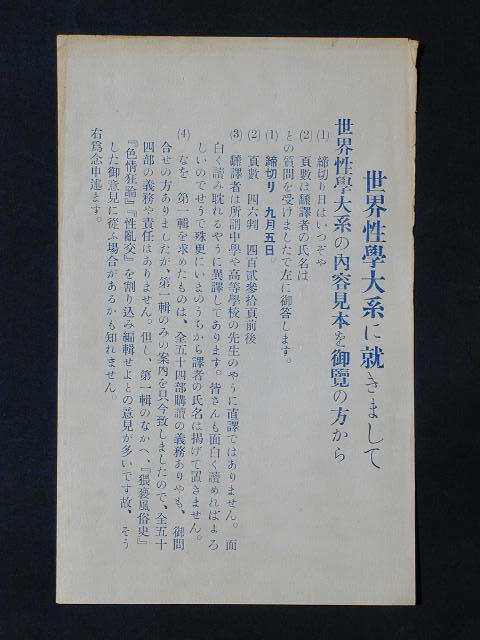 世界性學大系に就きまして
世界性學大系の內容見本を御覽の方から
(1) 締切り日はいつぞや
(2) 頁數は飜譯者の氏名は
との質問を受けましたで左に御答します。
(1) 締切リ 九月五日。
(2) 頁數 四六判 四百貳參拾頁前後
(3) 飜譯者は所謂中學や高等學校の先生のやうに直譯ではありません。面
白く讀み耽れるやうに異譯してあります。皆さんも面白く讀めればよろ
しいのでせうで殊更にいまのうちから譯者の氏名は揭げて置きません。
(4) なを 第一輯を求めたものは、全五十四部購讀の義務ありやも、御問
合せの方ありましたが、第一輯のみの案內を只今致しましたので、全五十
四部の義務や責任はありません。但し、第一輯のなかへ、『猥褻風俗史』
『色情狂論』『性亂交』を割り込み編輯せよとの意見が多いです故、そう
した御意見に從ふ場合があるかも知れません。
右爲念申述ます。